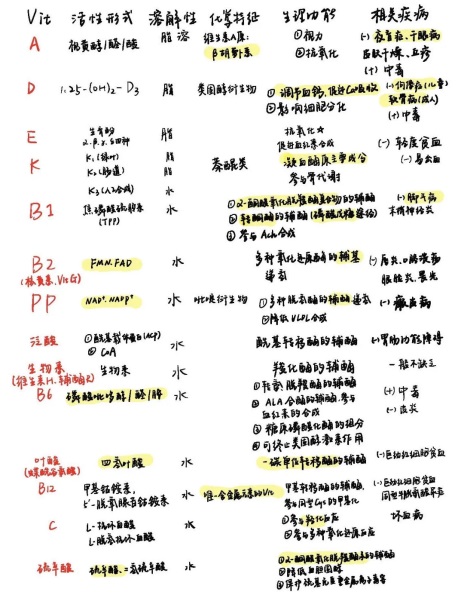 Vit 活性形式 溶解性 化学特征 生理功能 相关疾病
A 视黄醇/醛/酸 脂溶 维生素A原: ①视力 (-) 夜盲症、干眼病
β胡萝卜素 ②抗氧化 皮肤干燥、
(+) 中毒
D 1.25-(OH)2-D3 脂 类固醇衍生物 ①调节血钙,促进Ca吸收 (-) 佝偻症(儿童)
②影响细胞分化 软骨病(成人)
(+) 中毒
E 生育酚 脂 抗氧化☆ (-) 轻度贫血
α.β.γ.δ四种 促进血红素合成
K K1(绿叶) 脂 萘醌类 凝血酶原主要成分 (-) 易出血
K2(肠道) 脂 参与骨代谢
K3(人工合成) 水
B1 焦磷酸硫胺素 水 ①α-酮酸氧化脱羧酶复合物的辅酶 (-) 脚气病
(TPP) ②转酮酶的辅酶(磷酸戊糖途径) 末梢神经炎
③参与Ach合成
B2 FMN.FAD 水 多种氧化还原酶的辅基 (-) 唇炎、口腔溃疡
(核黄素、VitG) 递氢 眼睑炎、畏光
PP NAD+.NADP+ 水 吡啶衍生物 ①多种脱氢酶的辅酶 递氢 (-) 癞皮病
②降低VLDL合成
泛酸 ①酰基载体蛋白(ACP) 水 酰基转移酶的辅酶 (-) 胃肠功能障碍
②CoA
生物素 生物素 水 羧化酶的辅酶 一般不缺乏
(维生素H、辅酶R)
B6 磷酸吡哆醇/醛/胺 水 ①转氨脱羧酶的辅酶 (+) 中毒
②ALA合酶的辅酶,参与 (-) 皮炎
血红素的合成
③糖原磷酸化酶的组分
④可终止类固醇激素作用
叶酸 四氢叶酸 水 一碳单位转移酶的辅酶 (-) 巨幼红细胞贫血
(蝶酰谷氨酸)
B12 甲基钴胺素, 水 唯一含金属元素的Vit 甲基转移酶的辅酶, (-) 巨幼红细胞贫血
5'-脱氧腺苷钴胺素 参与同型Cys的甲基化 同型半胱氨酸尿症
C L-抗坏血酸 水 ①参与羟化反应 坏血病
L-脱氢抗坏血酸 ②参与多种氧化还原反应
硫辛酸 硫辛酸、二氢硫辛酸 水 ①α-酮酸氧化脱羧酶系的辅酶
②降低血胆固醇
③保护巯基免受重金属离子毒害